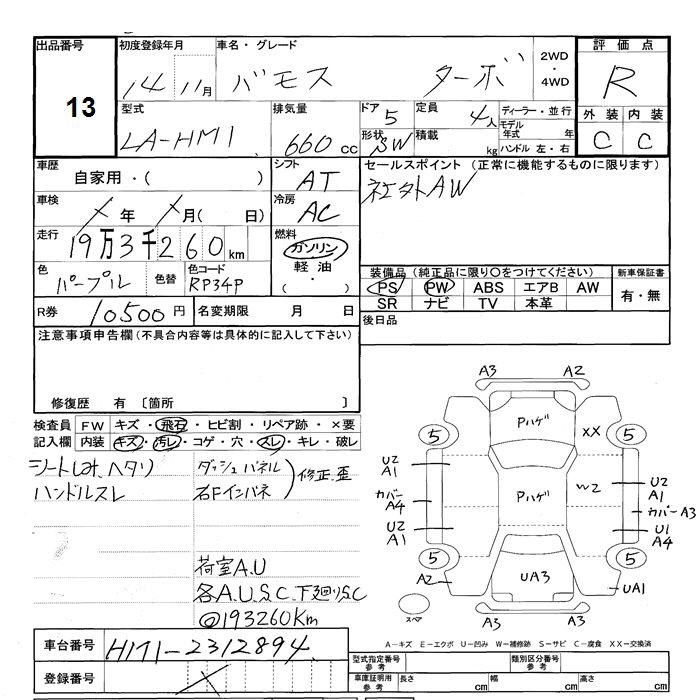 出品番号 初度登録年月 車名・グレード 評価点
13 14 11月 バモス ターボ 2WD・4WD R
型式 排気量 ドア 5 定員 4人 ディーラー・並行 外装 内装
LA-HM1 660cc 形状 SW 積載 kg モデル年式 年 C C
ハンドル 左・右
車歴 シフト セールスポイント (正常に機能するものに限ります)
自家用・( ) AT 社外AW
車検 冷房
X年 X月( 日) AC
走行 燃料
19万3千260km ガソリン
色 色替 色コード 軽油 装備品(純正品に限り○をつけてください) 新車保証書
パープル RP34P ( ・ ) PS PW ABS エアB AW 有・無
SR ナビ TV 本革
R券 10500円 名変期限 月 日 後日品
注意事項申告欄(不具合内容等は具体的に記入して下さい)
修復歴 有 〔箇所 〕
検査員 FW キズ・飛石・ヒビ割・リペア跡・×要
記入欄 内装 キズ・汚レ・コゲ・穴・スレ・キレ・破レ
シートしみ、ヘタリ ダッシュパネル
ハンドルスレ 右Fインパネ 修正、歪
荷室A.U
各A.U.S.C.下廻りS.C
@193260Km
A3 A2
Pハゲ
5 XX 5
U2 U2
A1 A1
カバー Pハゲ W2 カバーA3
A4
U2 U1
A1 A4
5 5
A2 UA3 UA1
スペア A3 A3
A－キズ E－エクボ U－凹み W－補修跡 S－サビ C－腐食 XX－交換済
車台番号 HM1-2312894
登録番号 X
型式指定番号 参考 類別区分番号 参考
車庫証明用 参考 長さ cm 幅 cm 高さ cm